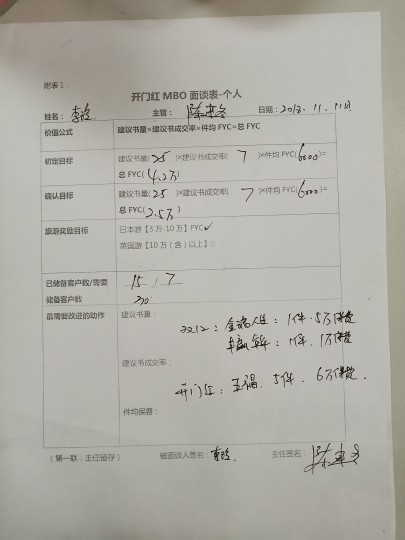 附表1：
开门红 MBO 面谈表-个人
姓名： 主管： 日期：2018.11.11日
价值公式 建议书量×建议书成交率×件均 FYC=总 FYC
初定目标 建议书量(25)×建议书成交率(7)×件均 FYC(6000)=
总 FYC(4.2万)
确认目标 建议书量(25)×建议书成交率(7)×件均 FYC(6000)=
总 FYC(2.5万)
旅游奖励目标 日本游【3万-10万】FYC✓
英国游【10万（含）以上】□
已储备客户数/需要 15 / 7
储备客户数 30
最需要改进的动作 建议书量：
双12：金瑞人生：1件·5万保费
1件，1万保费
建议书成交率：
开门红：五福，5件，6万保费.
件均保费：
（第一联：主任留存） 被面谈人签名： 主任签名：